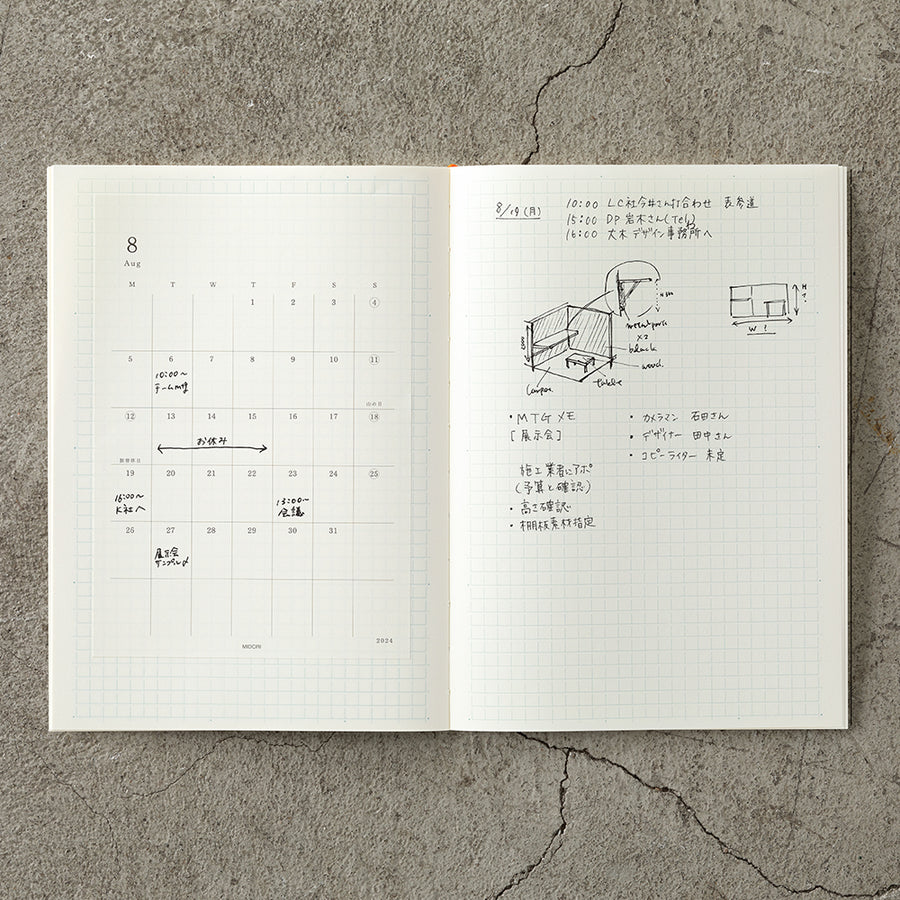 8
Aug
M T W T F S S
1 2 3 4
5 6 7 8 9 10 11
10:00〜
チームMTG
山の日
12 13 14 15 16 17 18
お休み
振替休日
19 20 21 22 23 24 25
16:00〜
K社へ
13:00〜
会議
26 27 28 29 30 31
展示会
サンプル〆
2024
MIDORI
8/19 (月)
10:00 LC社今井さん打合わせ 表参道
15:00 DP 岩木さん(Tel)
16:00 大木デザイン事務所へ
metal parts
×2
black
wood
table
carpet
H ?
W ?
・MTGメモ
[展示会]
施工業者にアポ
(予算と確認)
・高さ確認
・棚板素材指定
・カメラマン 石田さん
・デザイナー 田中さん
・コピーライター 未定